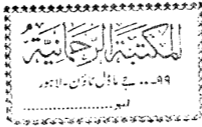 المكتبة الرحمانية
۹۹... جے ماڈل ٹاؤن - لاہور
نمبر....................